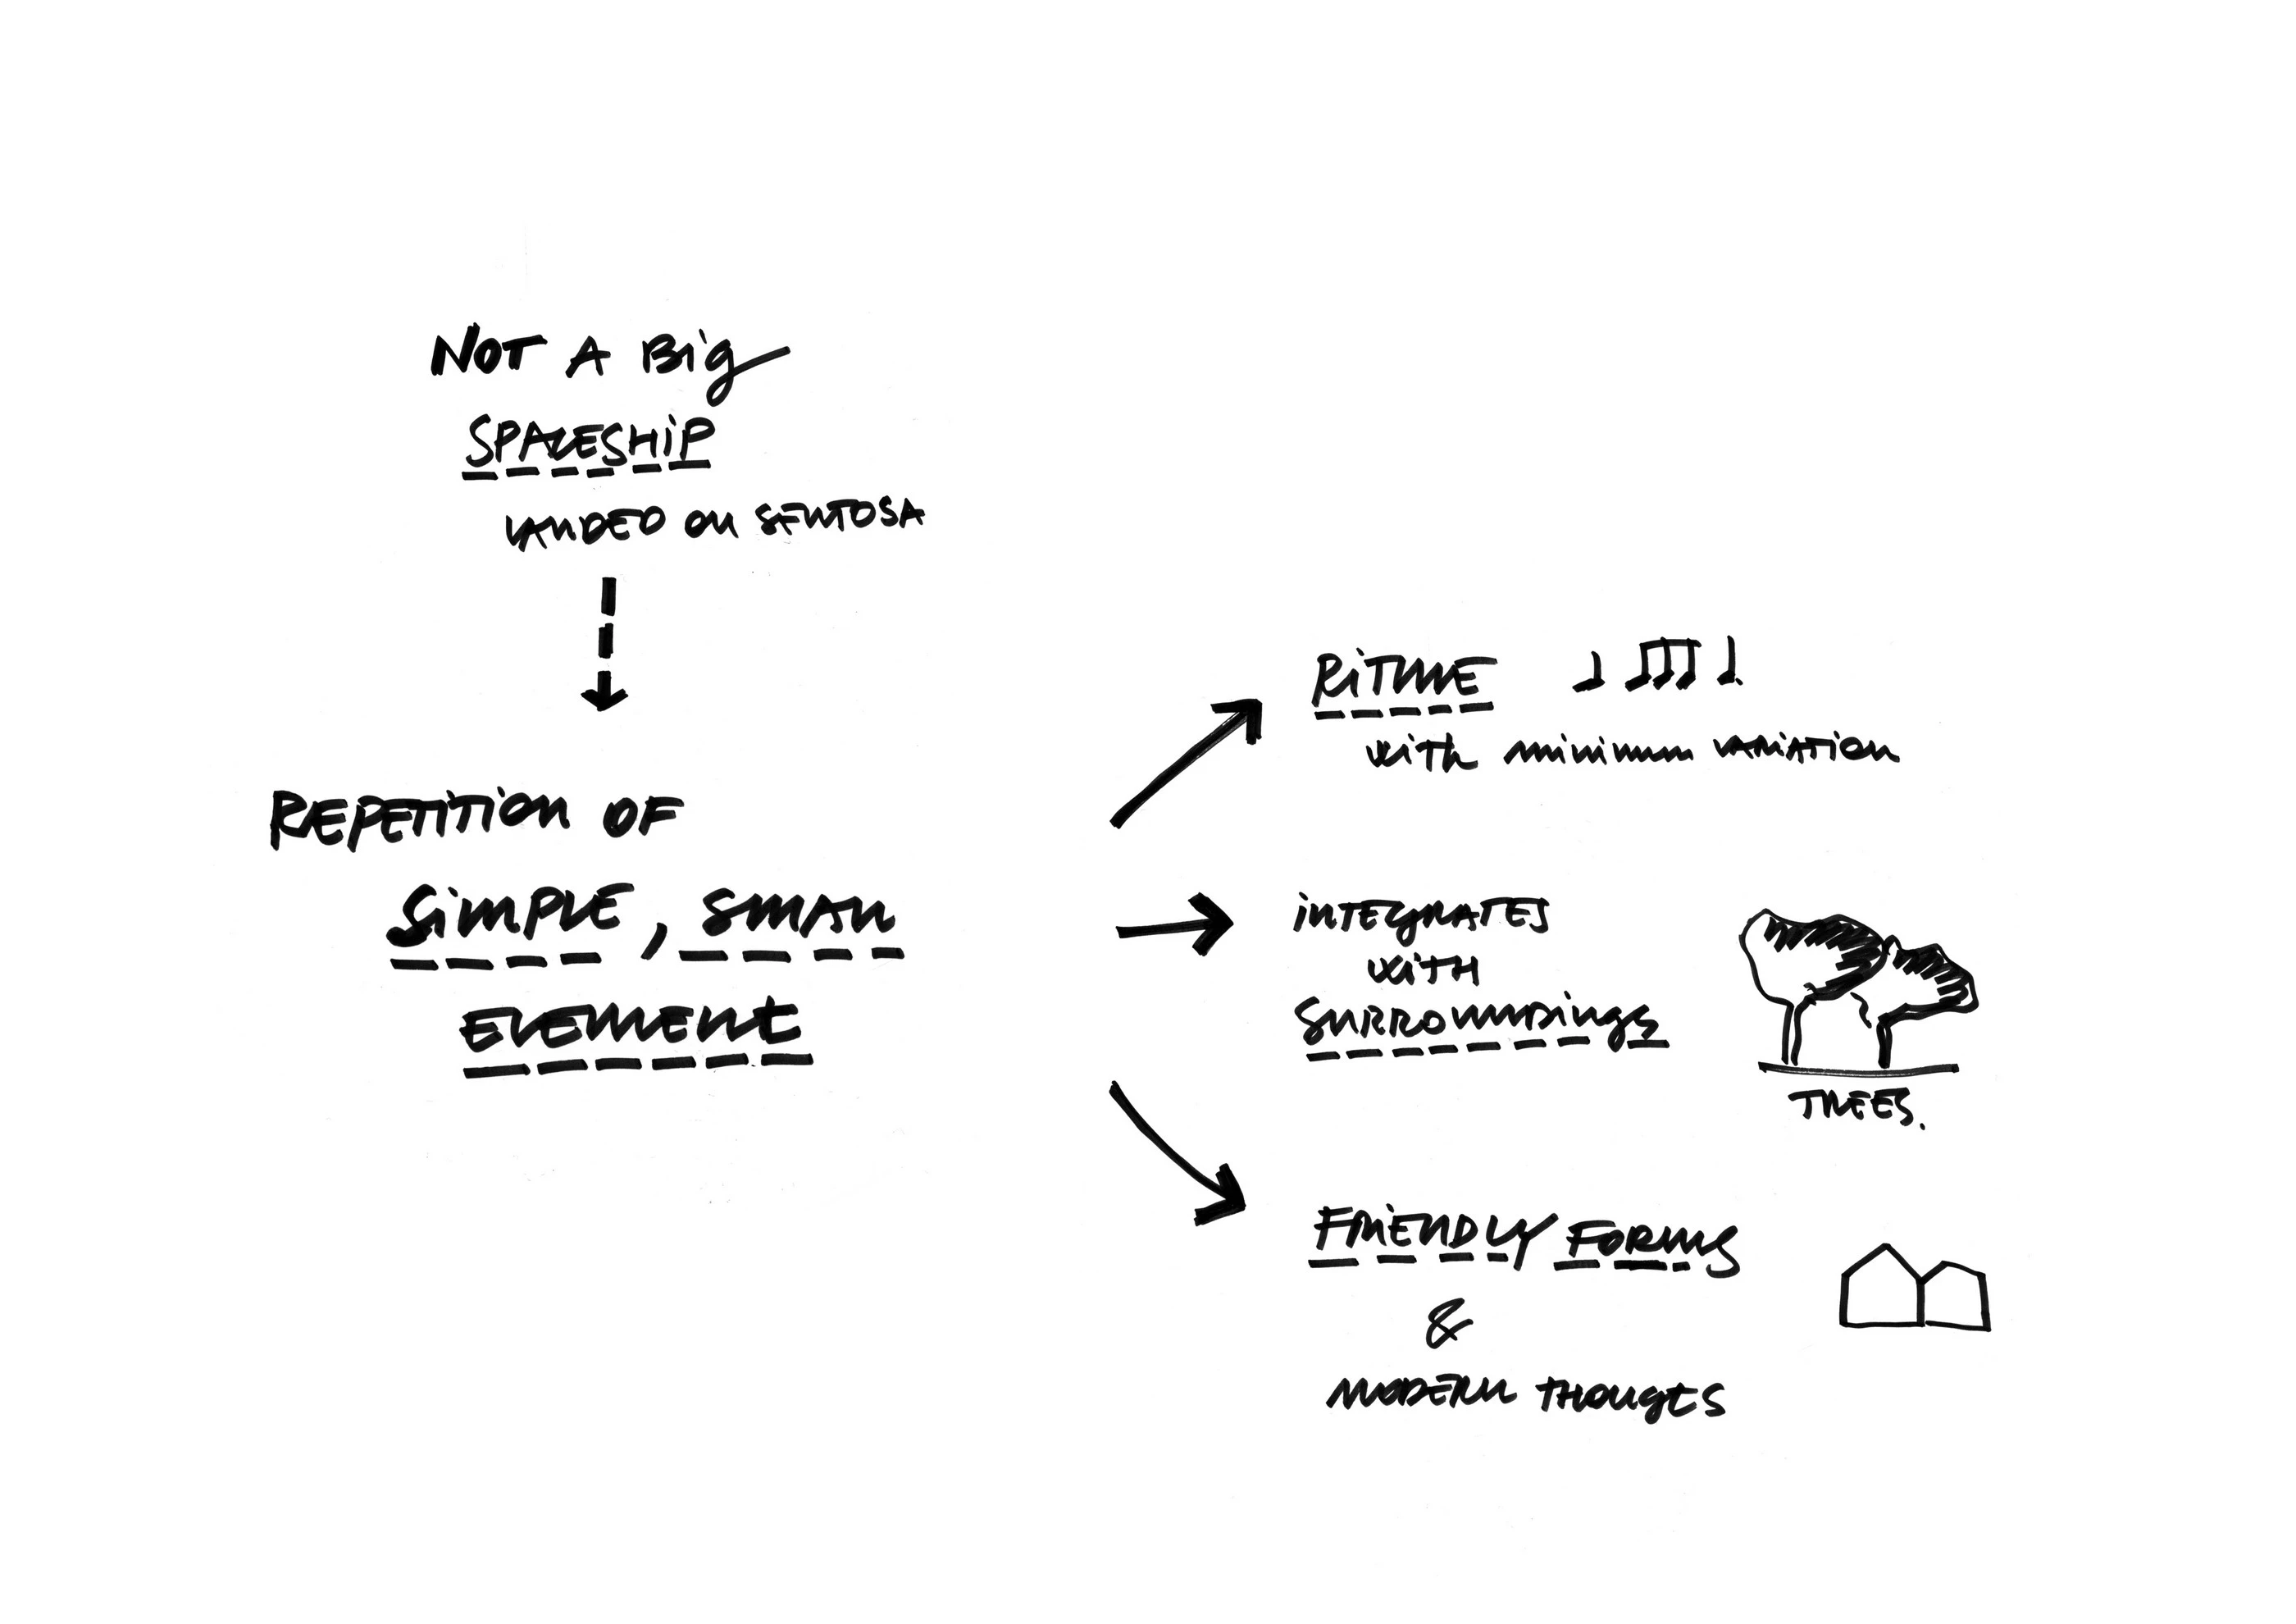 NOT A Big
SPACESHIP
LANDED ON SENTOSA
REPETITION OF
SIMPLE, SMALL
ELEMENT
RITME
with minimum VARIATION
INTEGRATES
WITH
SURROUNDINGS
TREES.
FRIENDLY FORMS
&
MODERN THOUGTS